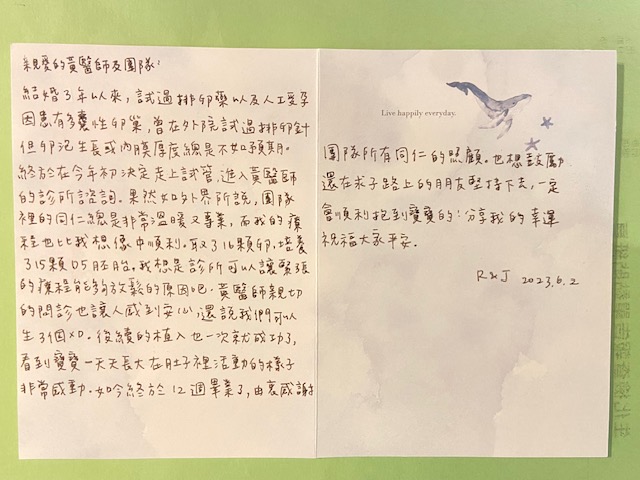 親愛的黃醫師及團隊:
結婚3年以來,試過排卵藥以及人工受孕
因患有多囊性卵巢,曾在外院試過排卵針
但卵泡生長或內膜厚度總是不如預期。
終於在今年初決定走上試管,進入黃醫師
的診所諮詢。果然如外界所說,團隊
裡的同仁總是非常溫暖又專業,而我的療
程也比我想像中順利。取了16顆卵,培養
了15顆D5胚胎,我想是診所可以讓緊張
的療程能夠放鬆的原因吧。黃醫師親切
的問診也讓人感到安心,還說我們可以
生3個XD。後續的植入也一次就成功了,
看到寶寶一天天長大在肚子裡活動的樣子
非常感動。如今終於12週畢業了,由衷感謝
Live happily everyday.
團隊所有同仁的照顧。也想鼓勵
還在求子路上的朋友堅持下去,一定
會順利抱到寶寶的!分享我的幸運
祝福大家平安。
R&J 2023.6.2